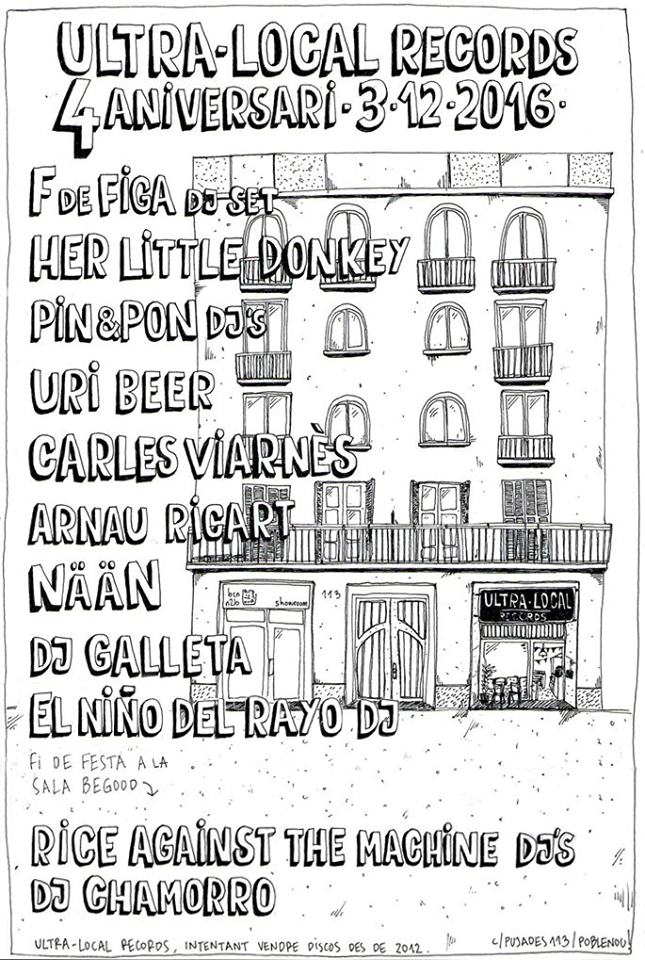 ULTRA-LOCAL RECORDS
4 ANIVERSARI · 3 · 12 · 2016 ·
F DE FIGA DJ SET
HER LITTLE DONKEY
PIN & PON DJ'S
URI BEER
CARLES VIARNÈS
ARNAU RIGART
NÄÄN
DJ GALLETA
EL NIÑO DEL RAYO DJ
bcn
n2b
showroom
113
ULTRA-LOCAL
RECORDS
FI DE FESTA A LA
SALA BEGOOD
RICE AGAINST THE MACHINE DJ'S
DJ CHAMORRO
ULTRA-LOCAL RECORDS, INTENTANT VENDRE DISCOS DES DE 2012.
C/PUJADES 113/POBLENOU